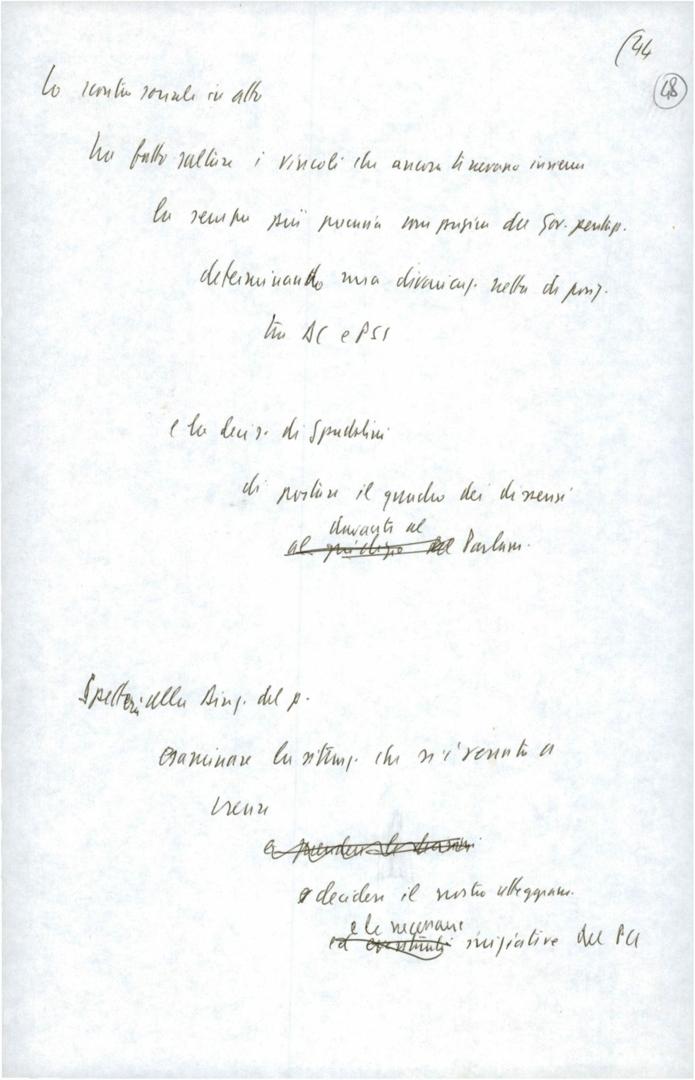 (44
48
Lo scontro sociale in atto
ha fatto saltare i vincoli che ancora tenevano insieme
la sempre più precaria compagine del Gov. pentap.
determinando una divaricaz. netta di posiz.
tra DC e PSI
e la decis. di Spadolini
di portare il quadro dei dissensi
davanti al
al giudizio del Parlam.
Spetterà alla Direz. del p.
esaminare la situaz. che si è venuta a
creare
e prendere le
e decidere il nostro atteggiam.
e le necessarie
ed eventuali iniziative del PCI